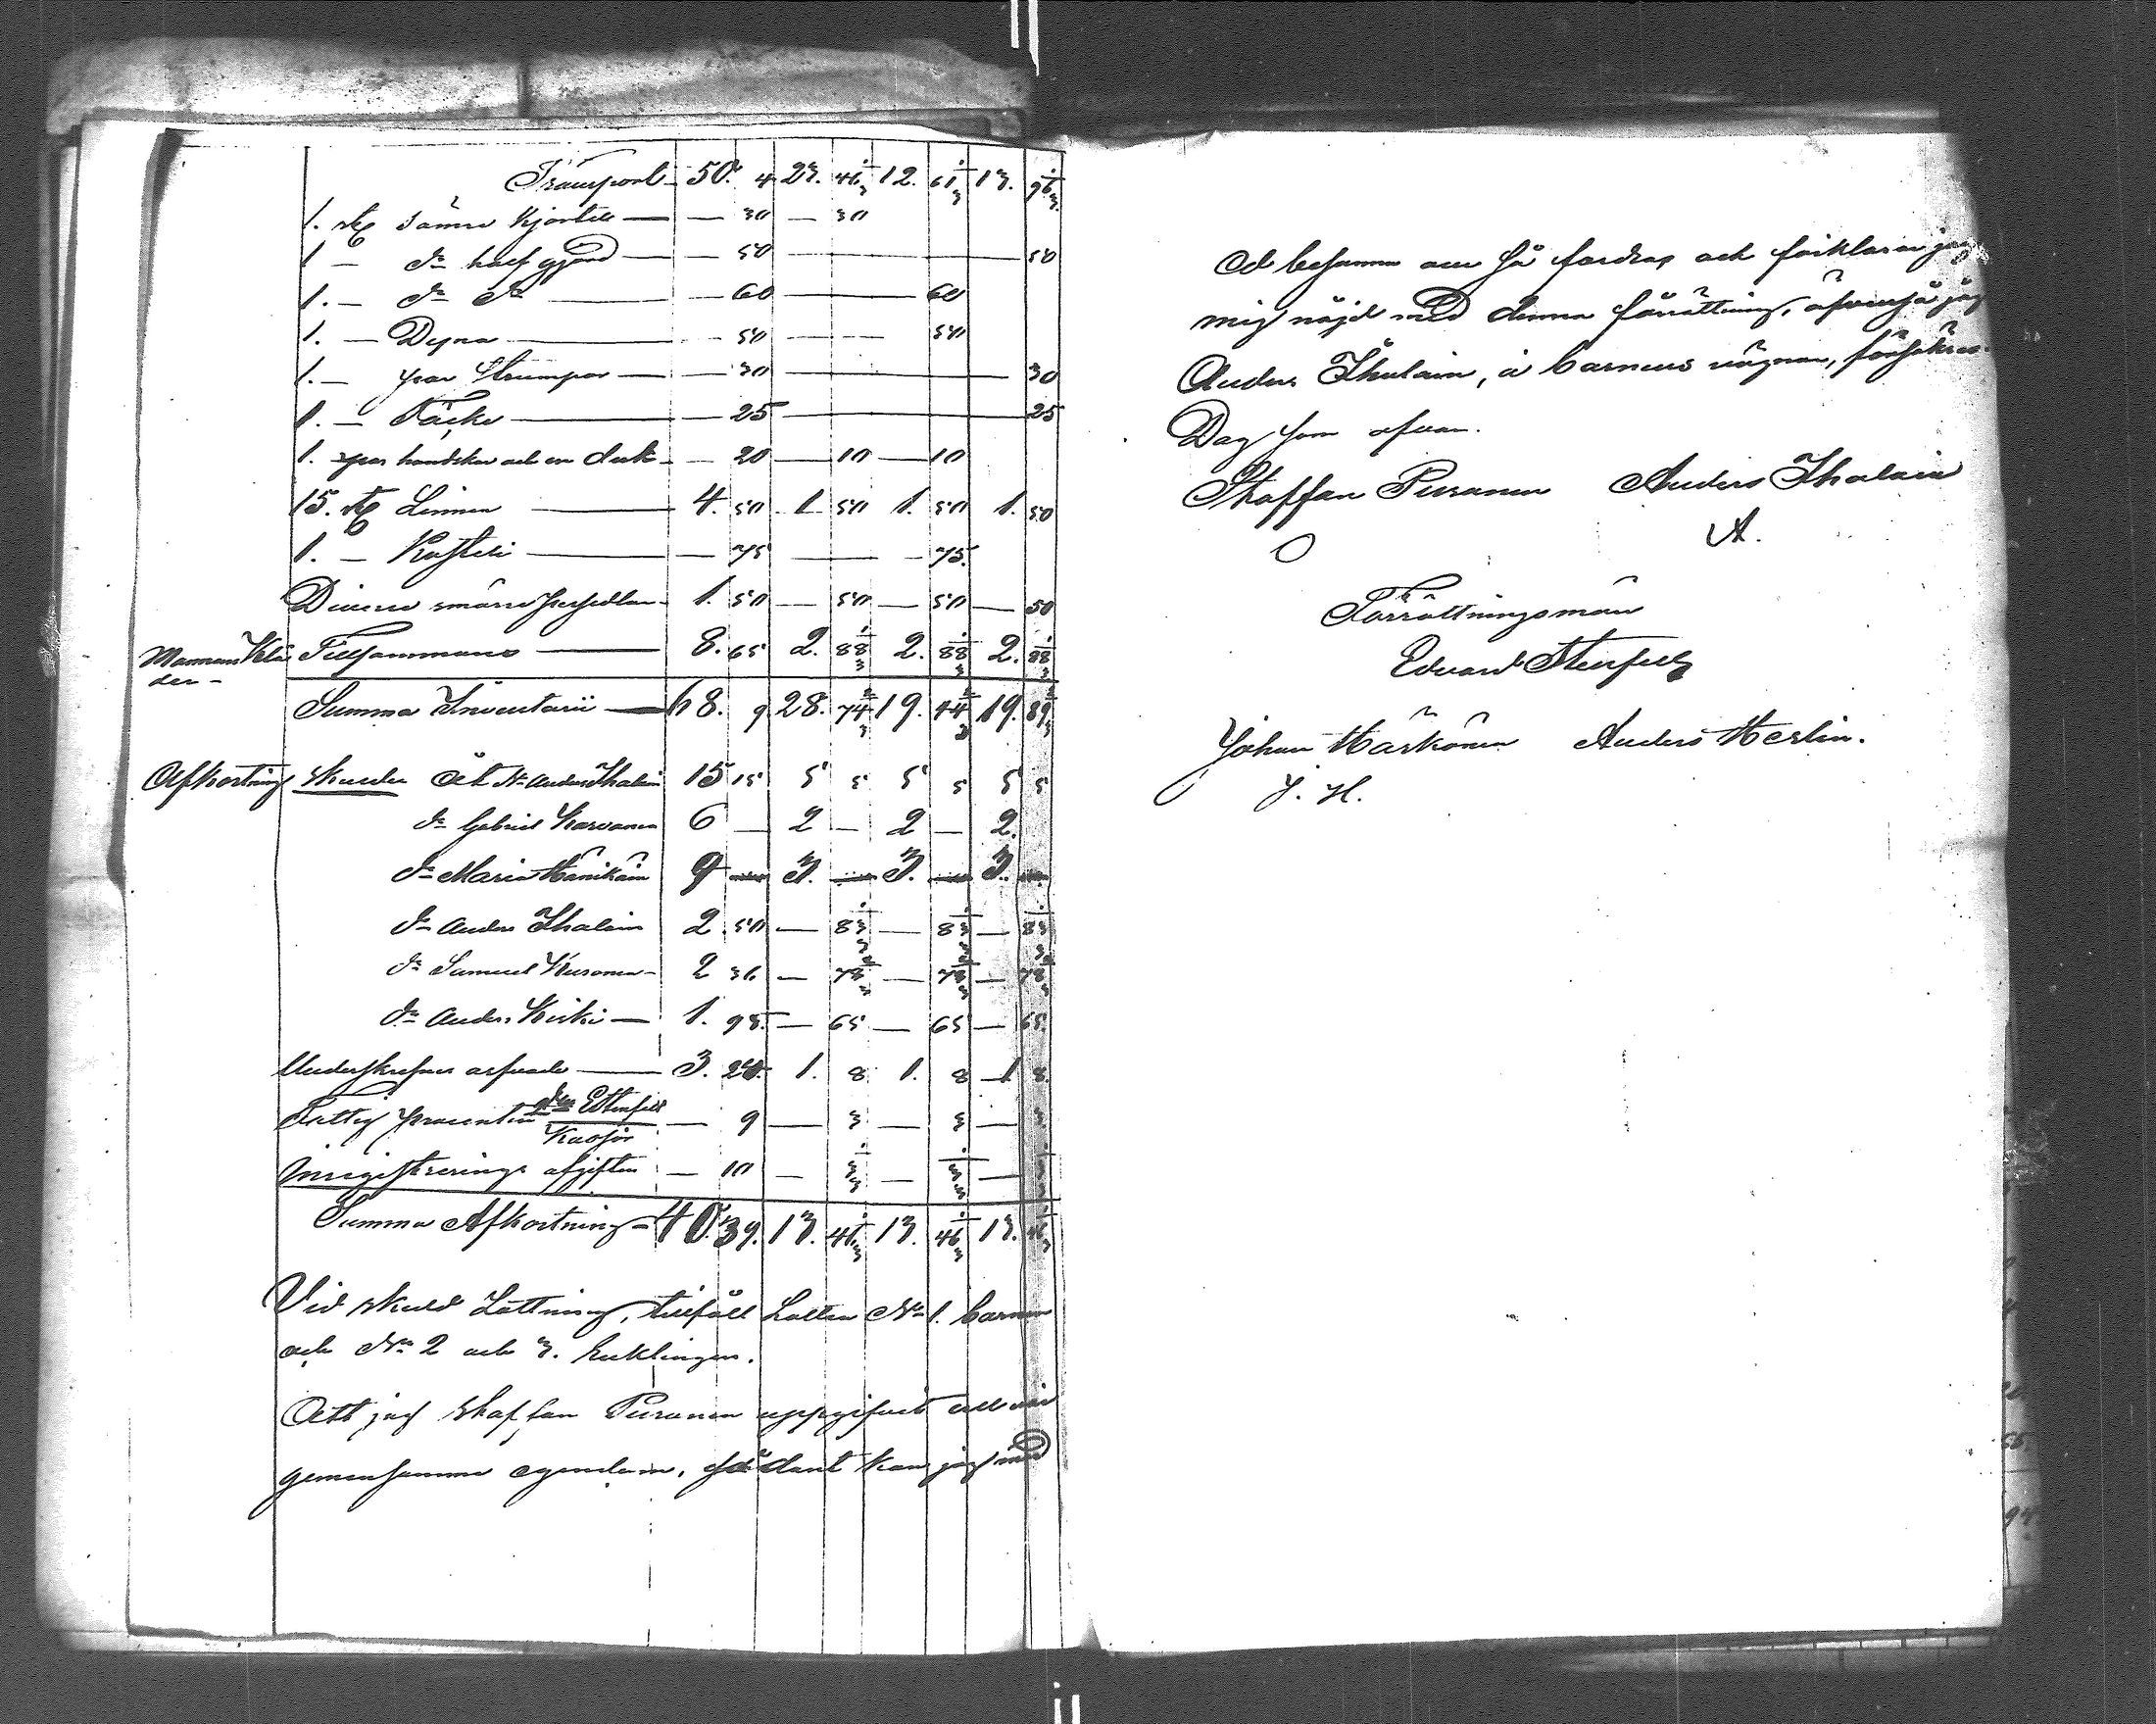 Transport 50. 4 23. 46 1/3 12. 61 1/3 13. 96 1/3
1. st sämre Kjortel — 30 — 30
1 — do half gjord — 50 — 50
1. — do do — 60 — 60
1. — Dyna — 50 — 50
1. — par Strumpor — 30 — 30
1. — Täcke — 25 — 25
1. par handskar och en duk — 20 — 10 — 10
15. st Linnen 4. 50 1 50 1. 50 1. 50
1. — — 75 — 75
Diverse smärre persedlar 1. 50 — 50 — 50 — 50
Mannens Klä Tillsammans 8. 65 2. 88 1/3 2. 88 1/3 2. 88 1/3
der —
Summa Inventarii 68. 9 28. 74 2/3 19. 44 2/3 19. 89 2/3
Afkortning skulder Åt Anders Ihalain 15 15 5 5 5 5 5 5
do Gabriel Karvanen 6 — 2 — 2 — 2.
do Maria Hänikäin 9 — 3. — 3. — 3.
do Anders Ihalain 2 50 — 83 1/3 — 83 1/3 — 83 1/3
do Samuel Kuronen 2 36 — 78 2/3 — 78 2/3 — 78 2/3
do Anders 1. 95. — 65 — 65 — 65
Underskrefnes arfvode 3. 24. 1. 8 1. 8 1 8.
Fattig procenten — 9 — 3 — 3 — 3
Inregistrerings afgiften — 10 — 3 1/3 — 3 1/3 — 3 1/3
Summa Afkortning 40. 39. 13. 46 1/3 13. 46 1/3 13. 46 1/3
Vid skuld Lottning, tillföll Lotten No 1. barnen
och No 2 och 3. Enklingen.
Att jag Staffan Puranen uppgifvit all vår
gemensamma egendom, sådant kan jag med
Ed besanna om så fordras och förklarar jag
mig nöjd med denna förrättning, äfvenså jag
Anders Ihalain, å barnens vägnar, försäkras.
Dag som ofvan.
Staffan Puranen Anders Ihalain
O A.
Förrättningsmän
Edvard Stenfelt
Johan Härkönen Anders Merlin.
J. H.